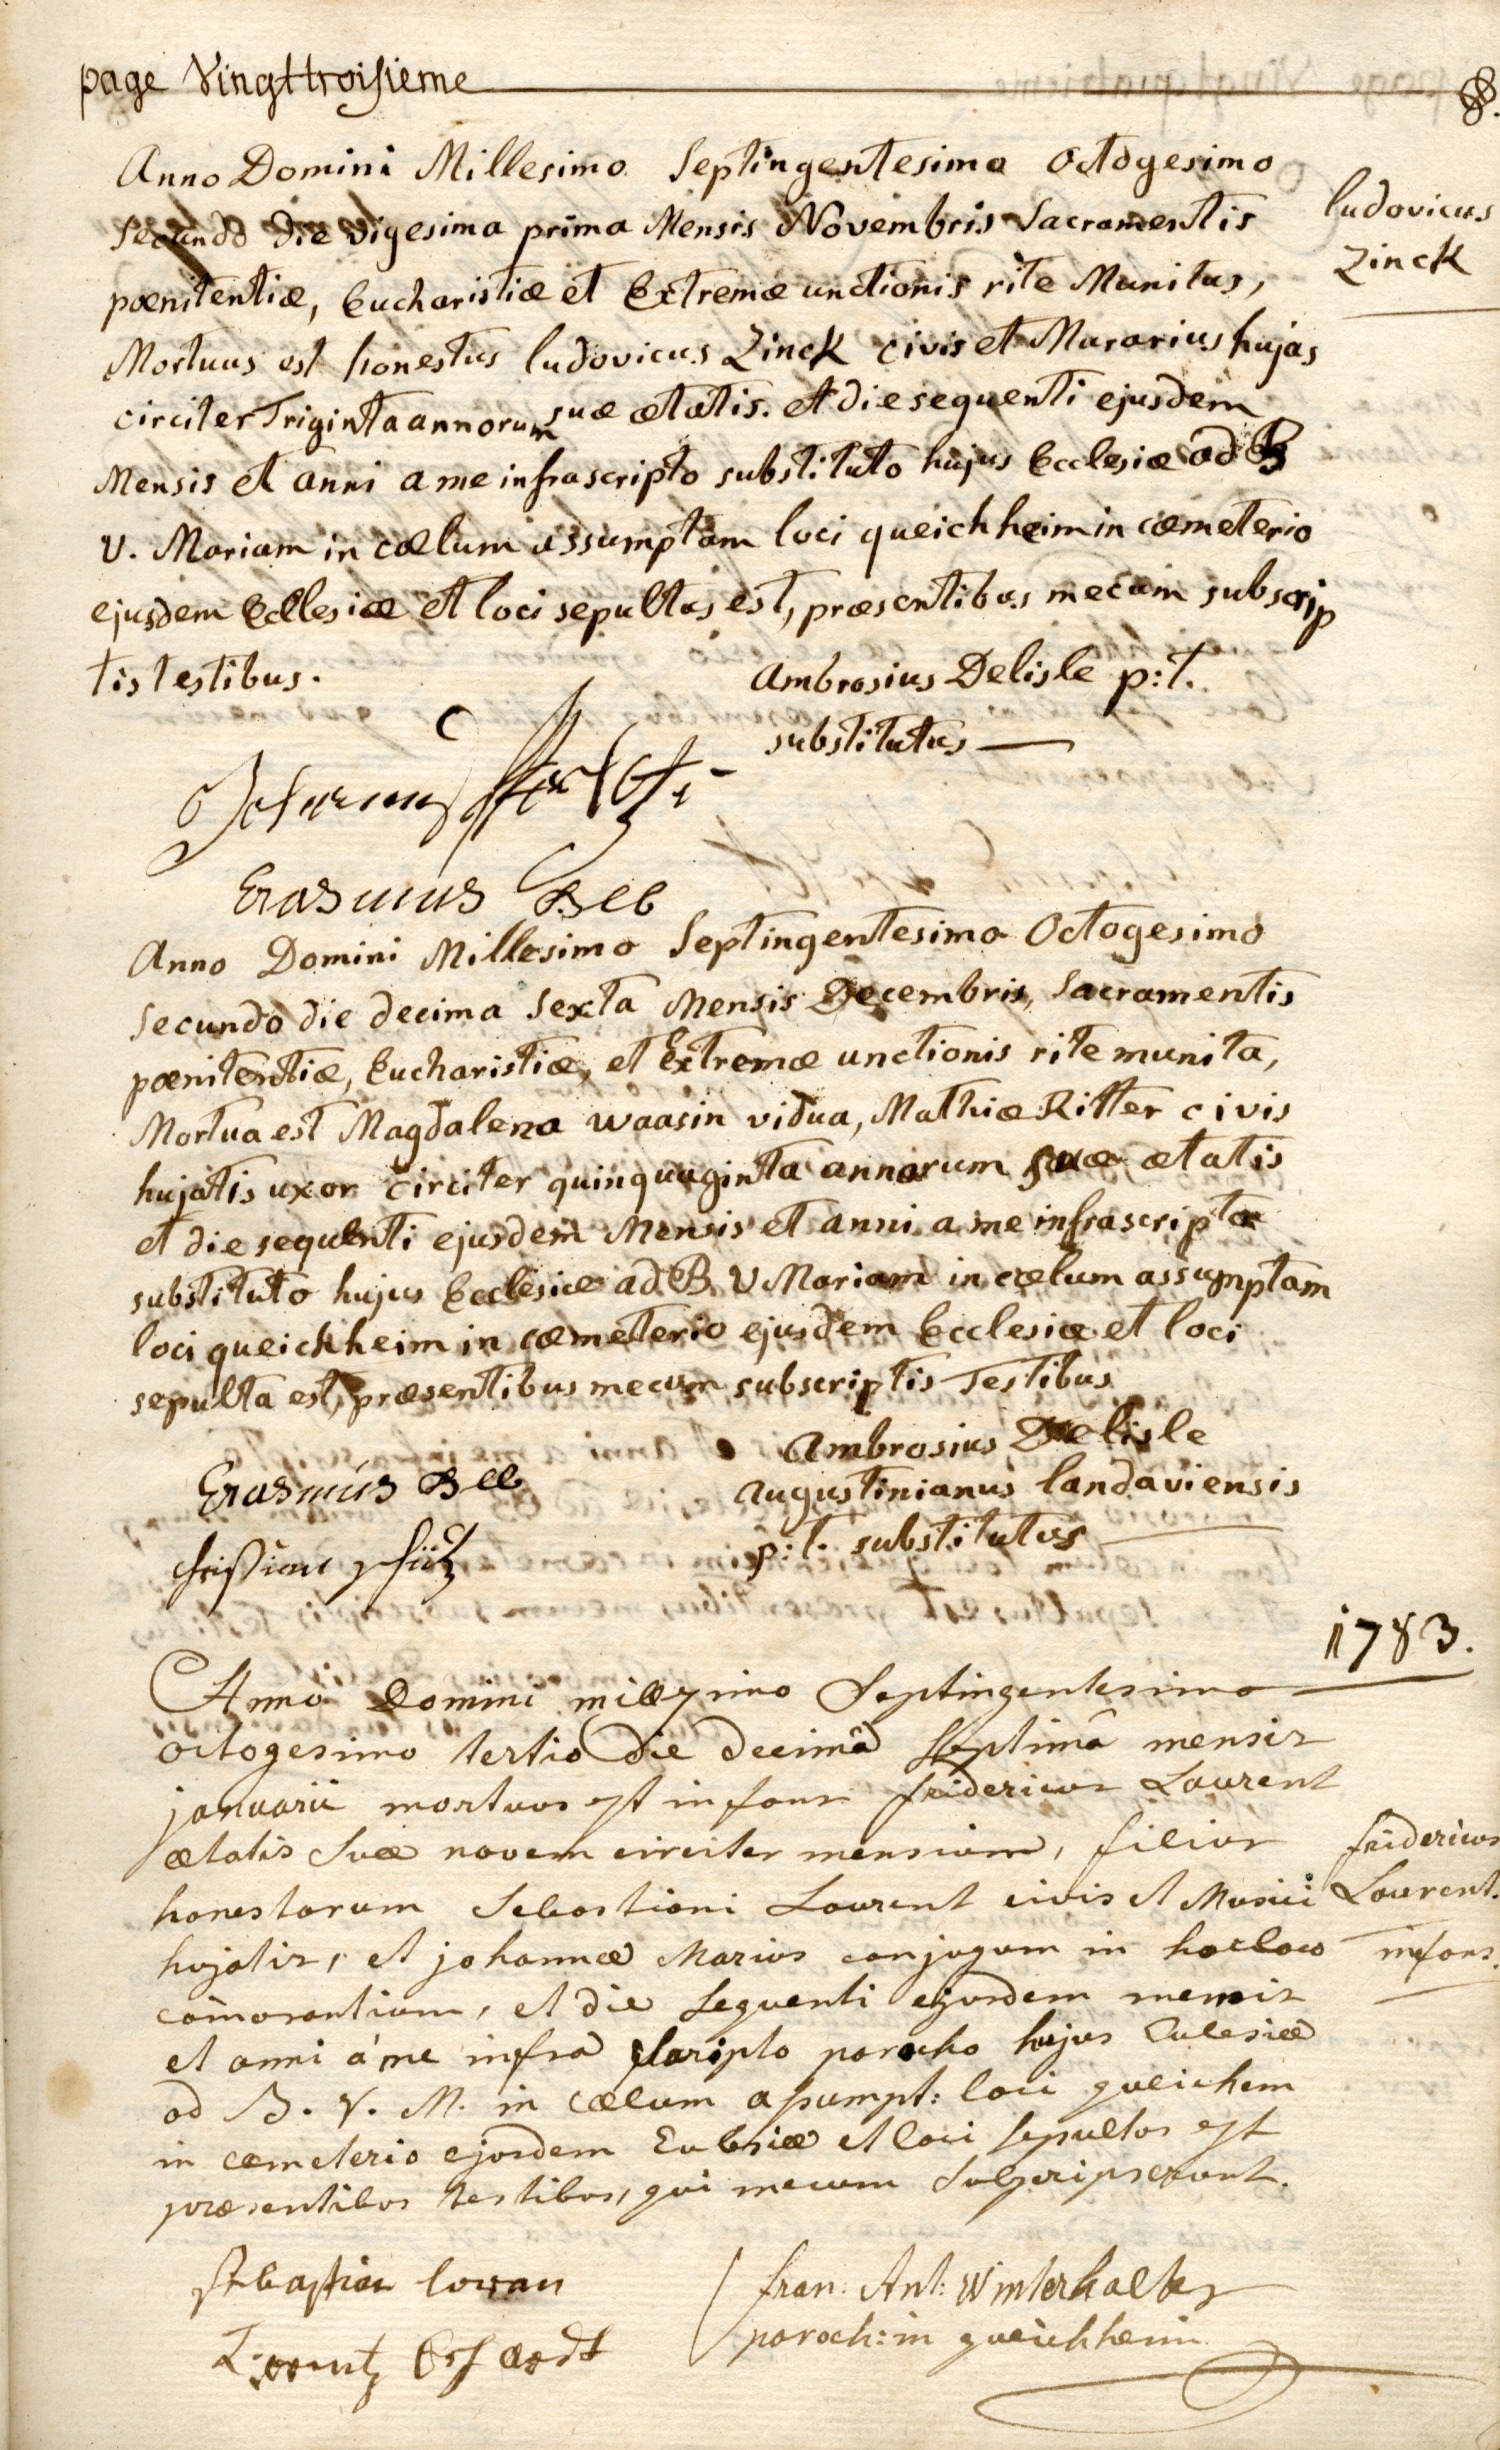 page Vingttroisieme
Anno Domini Millesimo Septingentesimo Octogesimo
Secundo die vigesima prima Mensis Novembris Sacramentis
ludovicus
Zinck
pœnitentiæ, Eucharistiæ et Extremæ unctionis rite Munitus,
Mortuus est honestus ludovicus Zinck civis et Murarius hujas
circiter Triginta annorum suæ ætatis. et die sequenti ejusdem
Mensis et anni a me infrascripto substituto hujus Ecclesiæ ad B
V. Mariam in cœlum assumptam loci queichheim in cœmeterio
ejusdem Ecclesiæ et loci sepultus est, præsentibus mecum subscrip
tis testibus.
Ambrosius Delisle p:t.
substitutus
Erasmus Beb
Anno Domini Millesimo Septingentesimo Octogesimo
Secundo die decima Sexta Mensis Decembris, Sacramentis
pœnitentiæ, Eucharistiæ, et Extremæ unctionis rite munita,
Mortua est Magdalena waasin vidua, Mathiæ Ritter civis
hujatis uxor circiter quinquaginta annorum suæ ætatis
et die sequenti ejusdem Mensis et anni a me infrascripto
substituto hujus Ecclesiæ ad B. V Mariam in cœlum assumptam
loci queichheim in cœmeterio ejusdem Ecclesiæ et loci
sepulta est, præsentibus mecum subscriptis Testibus
Ambrosius Delisle
Augustinianus landaviensis
p:t. substitutus
Erasmus Beb
1783.
Anno Domini millesimo Septingentesimo
octogesimo tertio die decimâ Septimâ mensis
januarii mortuus est infans fridericus Laurent
ætatis suæ novem circiter mensium, filius
fridericus
Laurent.
infans.
honestorum Sebastiani Laurent civis et Musici
hujatis, et johannæ Marius conjugum in hoc loco
com̃orantium, et die sequenti ejusdem mensis
et anni à me infra scripto parocho hujus Ecclesiæ
ad B. V. M. in Cœlum assumpt: loci queichem
in cœmeterio ejusdem Ecclesiæ et loci sepultus est
præsentibus testibus, qui mecum Subscripserunt.
Sebastian loran
fran: Ant: Winterhalter
paroch: in queichheim